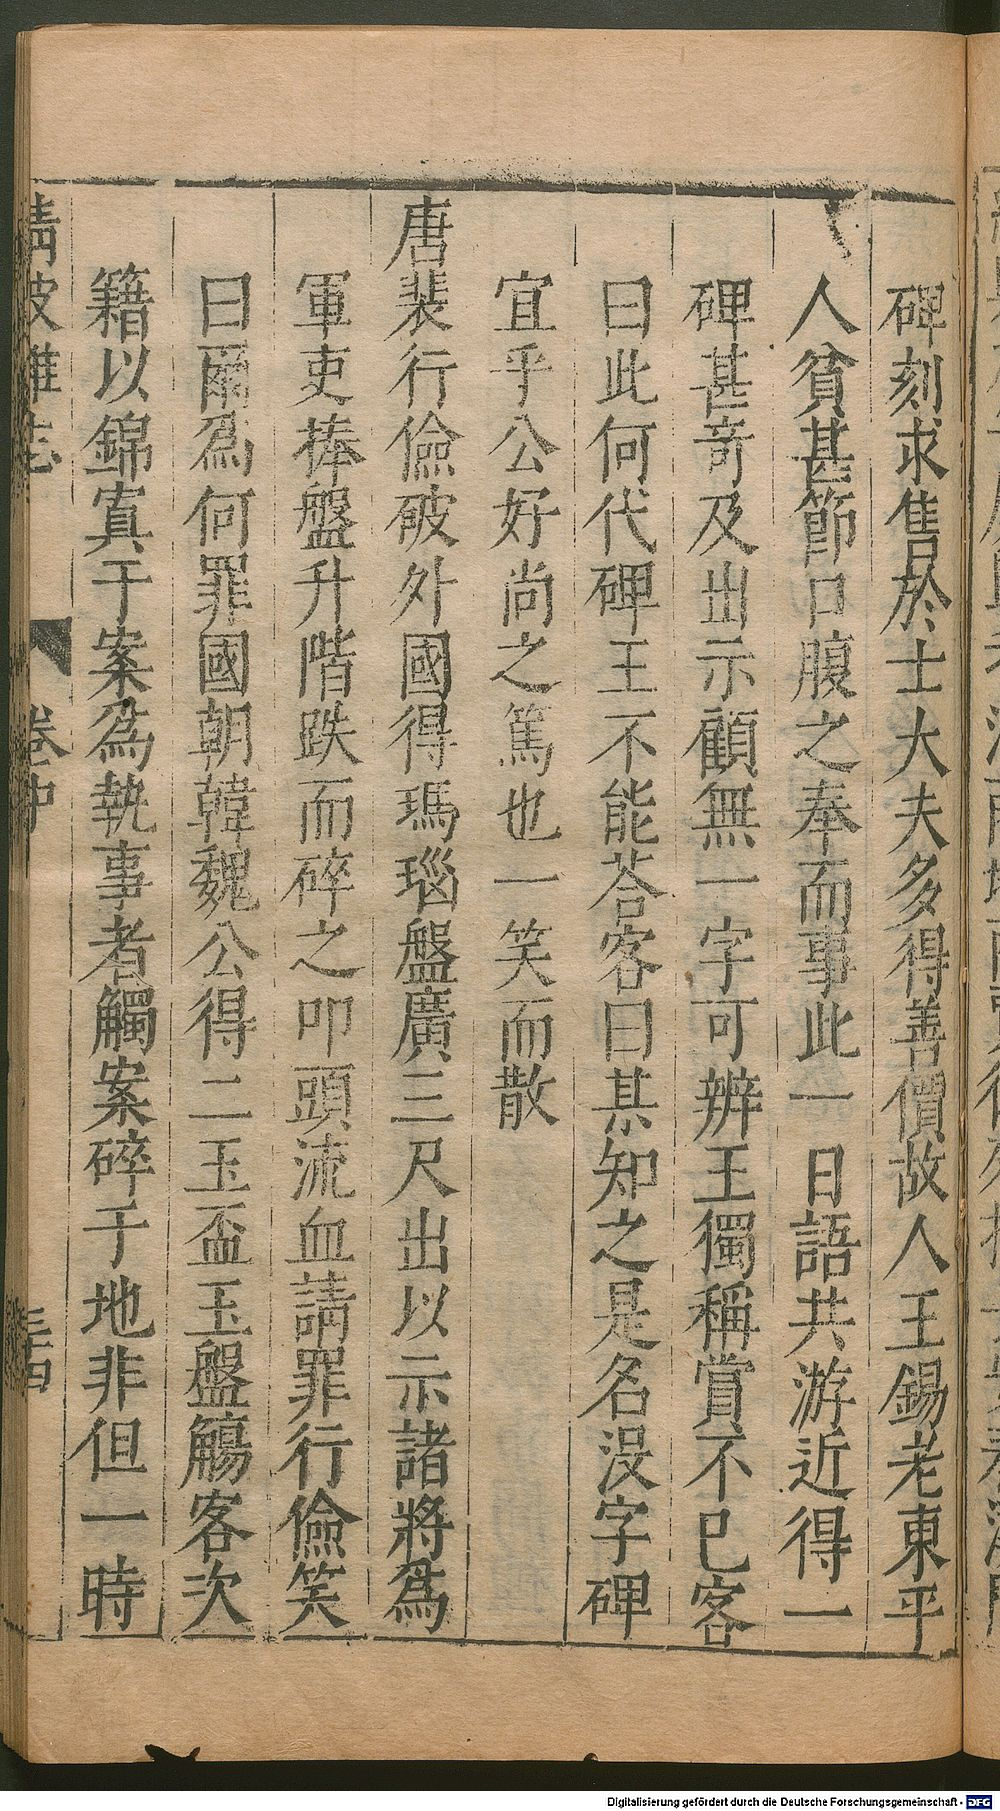 碑刻求售於士大夫多得善價故人王錫老東平
人貧甚節口腹之奉而事此一日語共游近得一
碑甚奇及出示顧無一字可辨王獨稱賞不已客
曰此何代碑王不能荅客曰某知之是名沒字碑
宜乎公好尚之篤也一笑而散
唐裴行儉破外國得瑪瑙盤廣三尺出以示諸將爲
軍吏捧盤升階跌而碎之叩頭流血請罪行儉笑
曰爾爲何罪國朝韓魏公得二玉盃玉盤觴客次
籍以錦寘于案爲執事者觸案碎于地非但一時
清波雜志 卷中 三十四
Digitalisierung gefördert durch die Deutsche Forschungsgemeinschaft - DFG